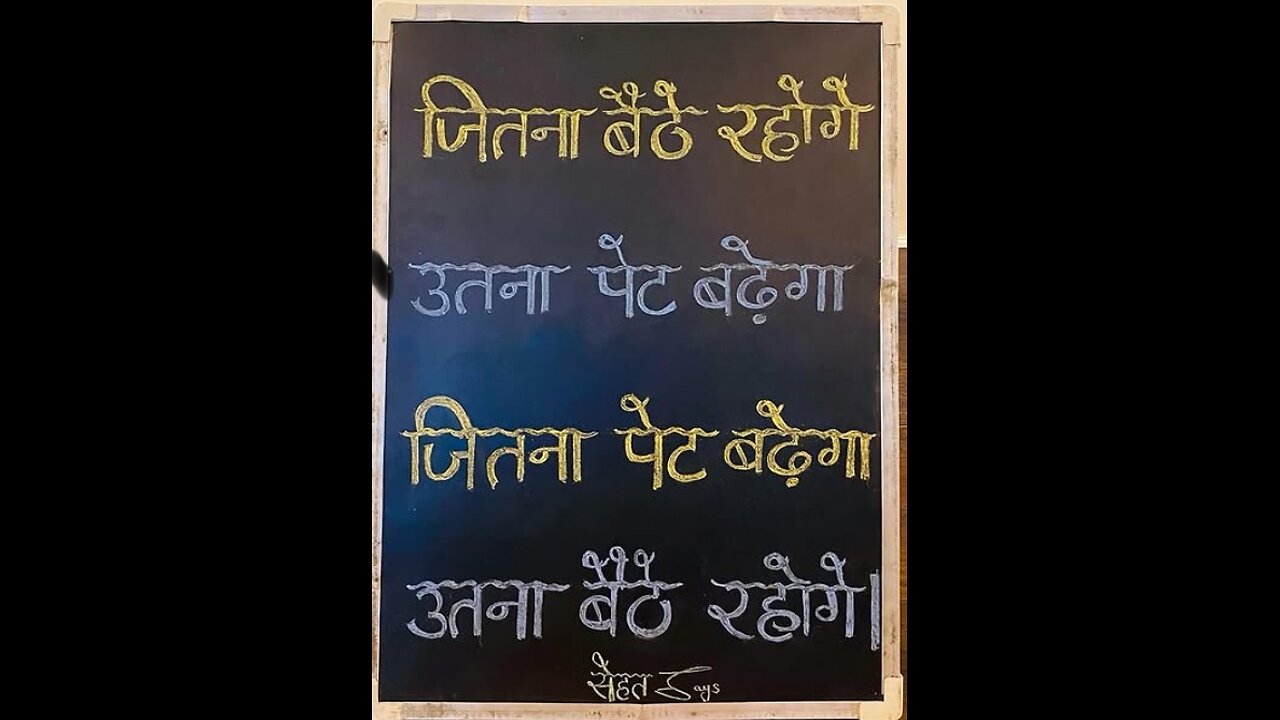 जितना बैठे रहोगे
उतना पेट बढ़ेगा
जितना पेट बढ़ेगा
उतना बैठे रहोगे।
सेहत Says